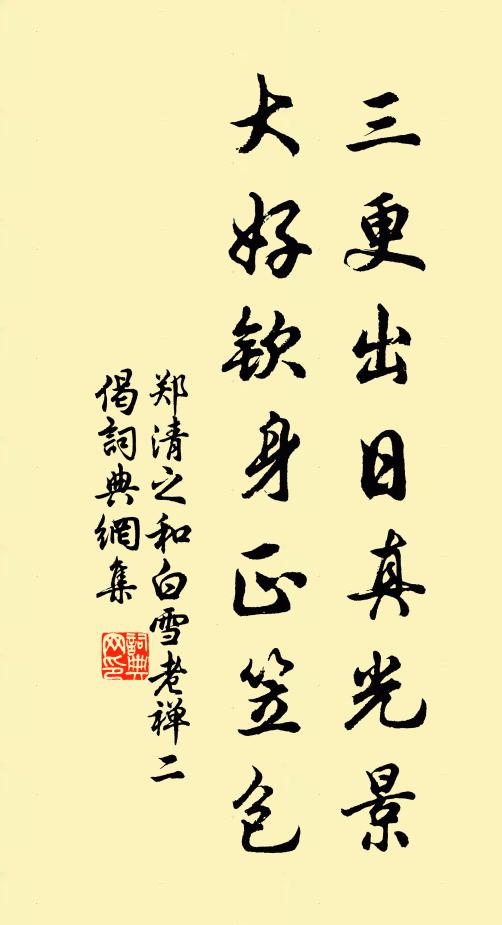 三更出日真光景
大好欽身正笠包
郑清之和白雪老禅二
偈詞典網集
詞典网印